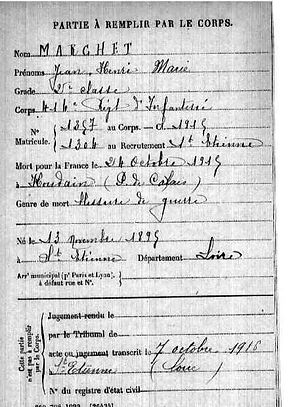 PARTIE À REMPLIR PAR LE CORPS.
Nom MARCHET
Prénoms Jean Henri Marie
Grade 2e classe
Corps 414e Régt d'Infanterie
N° 1397 au Corps. — Cl. 1915
Matricule. 1304 au Recrutement St Etienne
Mort pour la France le 24 Octobre 1915
à Houdain (P. de Calais)
Genre de mort Blessure de guerre
Né le 13 novembre 1895
à St Etienne Département Loire
Arrt municipal (pr Paris et Lyon),
à défaut rue et N°.
Cette partie
n'est pas à remplir
par le Corps.
Jugement rendu le
par le Tribunal de
acte ou jugement transcrit le 7 octobre 1916
à St Etienne (Loire)
N° du registre d'état civil